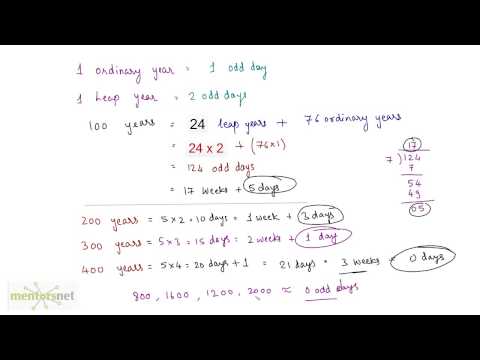 1 ordinary year = 1 odd day
1 Leap year = 2 odd days
100 years = 24 leap years + 76 ordinary years
= 24 x 2 + (76x1)
= 124 odd days
= 17 weeks + 5 days
17
7 ) 124
7
54
49
05
200 years = 5x2 = 10 days = 1 week + 3 days
300 years = 5x3 = 15 days = 2 weeks + 1 day
400 years = 5x4 = 20 days + 1 = 21 days = 3 weeks + 0 days
800, 1600, 1200, 2000 ≈ 0 odd days
mentorsnet